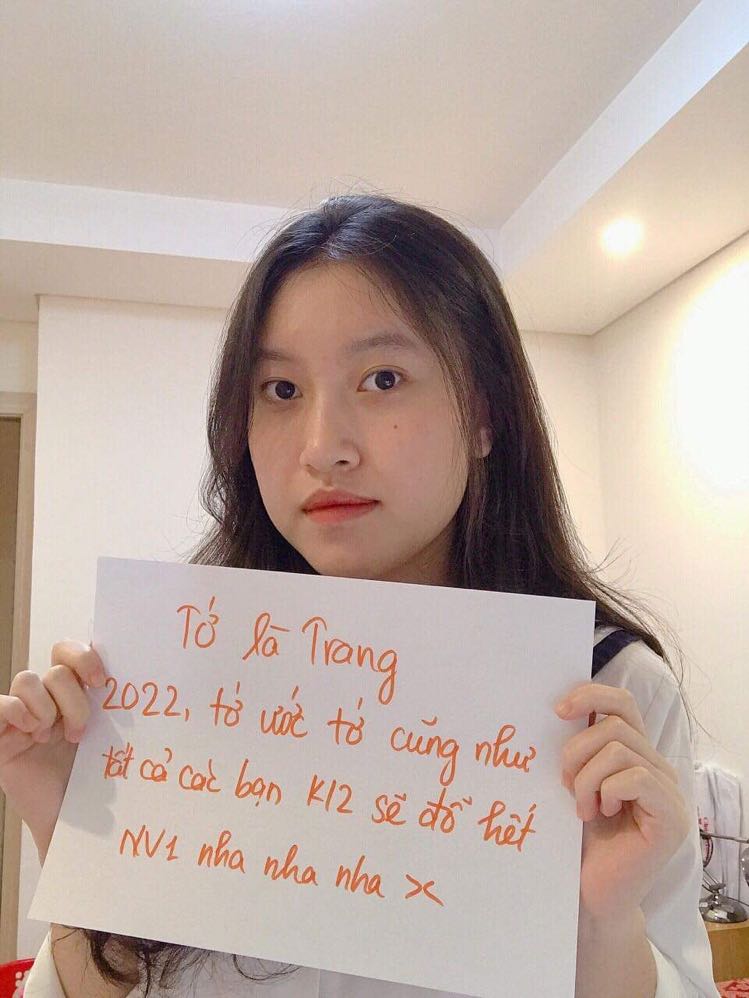 Tớ là Trang
2022, tớ ước tớ cũng như
tất cả các bạn K12 sẽ đỗ hết
NV1 nha nha nha ><